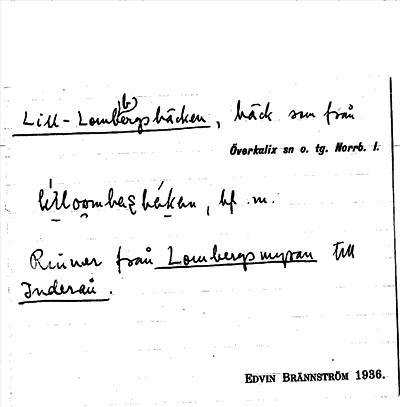 Lill-Lom(b)bergsbäcken, bäck som från
Överkalix sn o. tg. Norrb. l.
bf. m.
Rinner från Lombergsmyran till
Inderån.
EDVIN BRÄNNSTRÖM 1936.